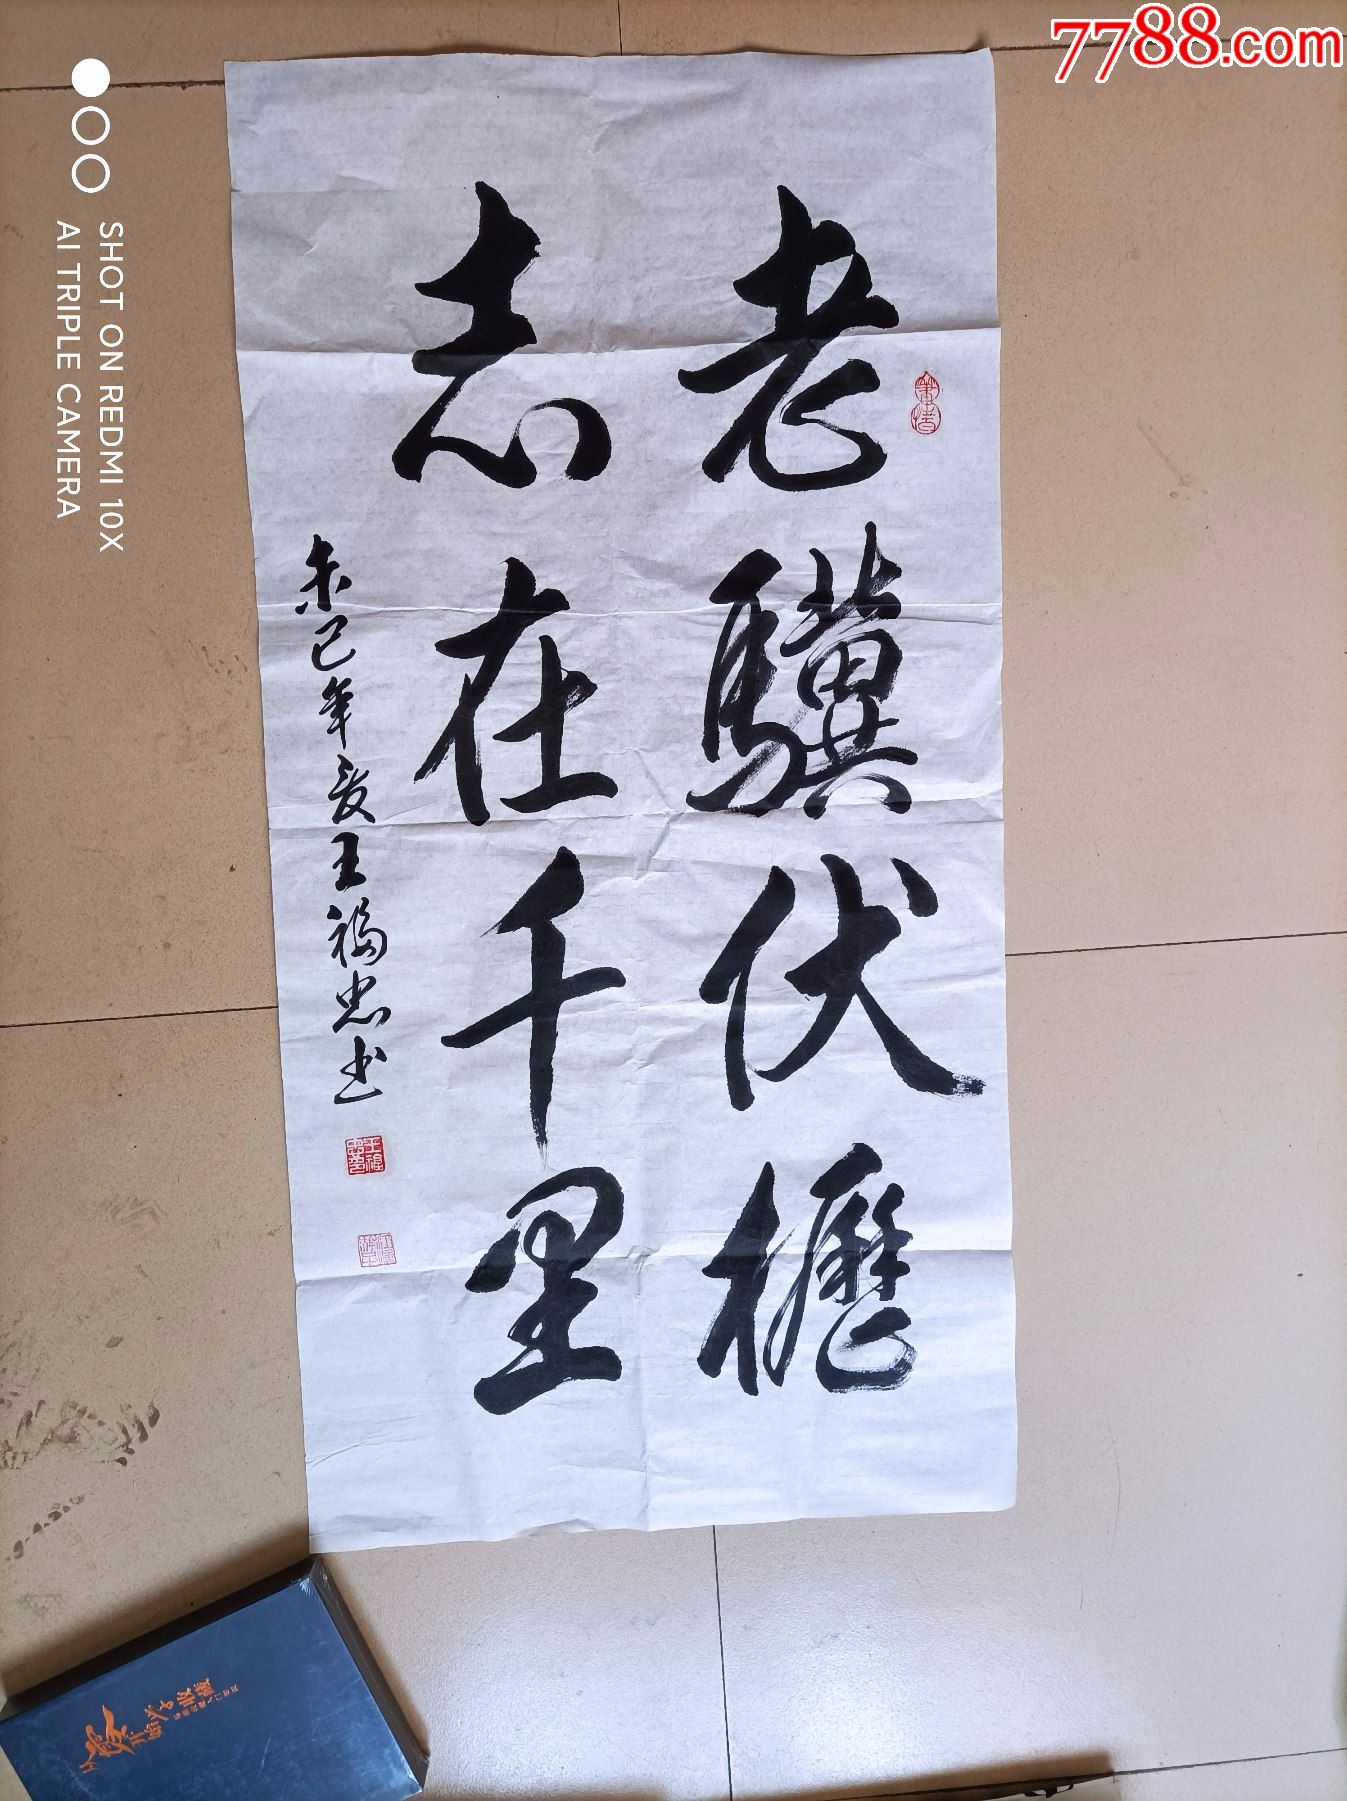 7788.com
SHOT ON REDMI 10X
AI TRIPLE CAMERA
老驥伏櫪
志在千里
未已年夏王福忠书